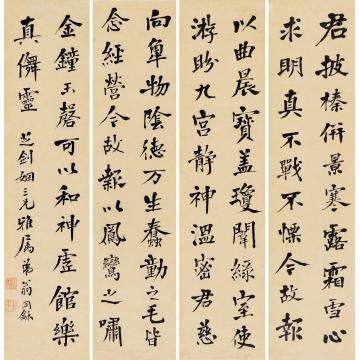 君披榛併景寒露霜雪心
求明真不戰不慄今故報
以曲晨寶蓋瓊闈緣室使
游盻九宮靜神溫密君慈
向阜物陰德萬生蠢動之毛皆
念經營今故報以鳳鸞之嘯
金鐘玉磬可以和神虛館樂
真儔靈 芝劍姻三兄雅屬 弟翁同龢